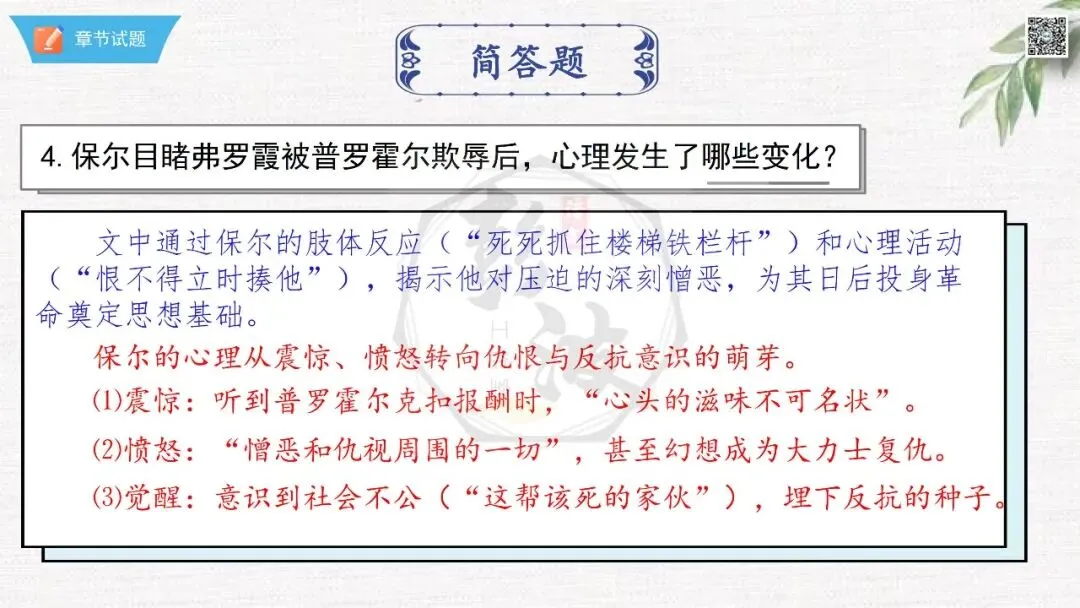 章节试题
简答题
4.保尔目睹弗罗霞被普罗霍尔欺辱后，心理发生了哪些变化？
文中通过保尔的肢体反应（“死死抓住楼梯铁栏杆”）和心理活动
（“恨不得立时揍他”），揭示他对压迫的深刻憎恶，为其日后投身革
命奠定思想基础。
保尔的心理从震惊、愤怒转向仇恨与反抗意识的萌芽。
⑴震惊：听到普罗霍尔克扣报酬时，“心头的滋味不可名状”。
⑵愤怒：“憎恶和仇视周围的一切”，甚至幻想成为大力士复仇。
⑶觉醒：意识到社会不公（“这帮该死的家伙”），埋下反抗的种子。